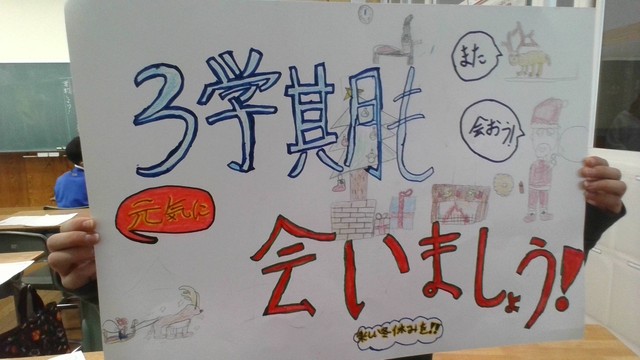 また
3学期も
会おう!
元気に
会いましょう!
楽しい冬休みを!!